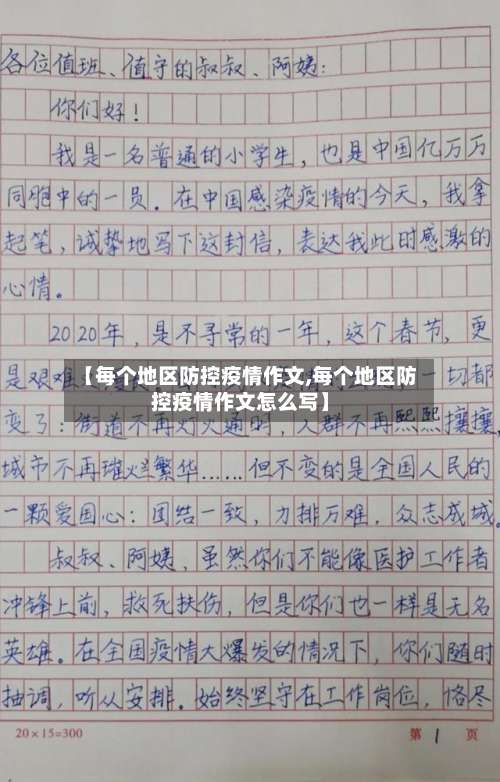 各位值班、值守的叔叔、阿姨：
你们好！
我是一名普通的小学生，也是中国亿万万
同胞中的一员。在中国感染疫情的今天，我拿
起笔，诚挚地写下这封信，表达我此时感激的
心情。
2020年，是不寻常的一年，这个春节，更
是艰难
一切都
【每个地区防控疫情作文,每个地区防
控疫情作文怎么写】
变了：街道不再灯火通明，人群不再熙熙攘攘，
城市不再璀灿繁华……但不变的是全国人民的
一颗爱国心：团结一致，力排万难，众志成城。
叔叔、阿姨，虽然你们不能像医护工作者
冲锋上前，救死扶伤，但是你们也一样是无名
英雄。在全国疫情大爆发的情况下，你们随时
抽调，听从安排。始终坚守在工作岗位，恪尽
20×15=300
第 1 页